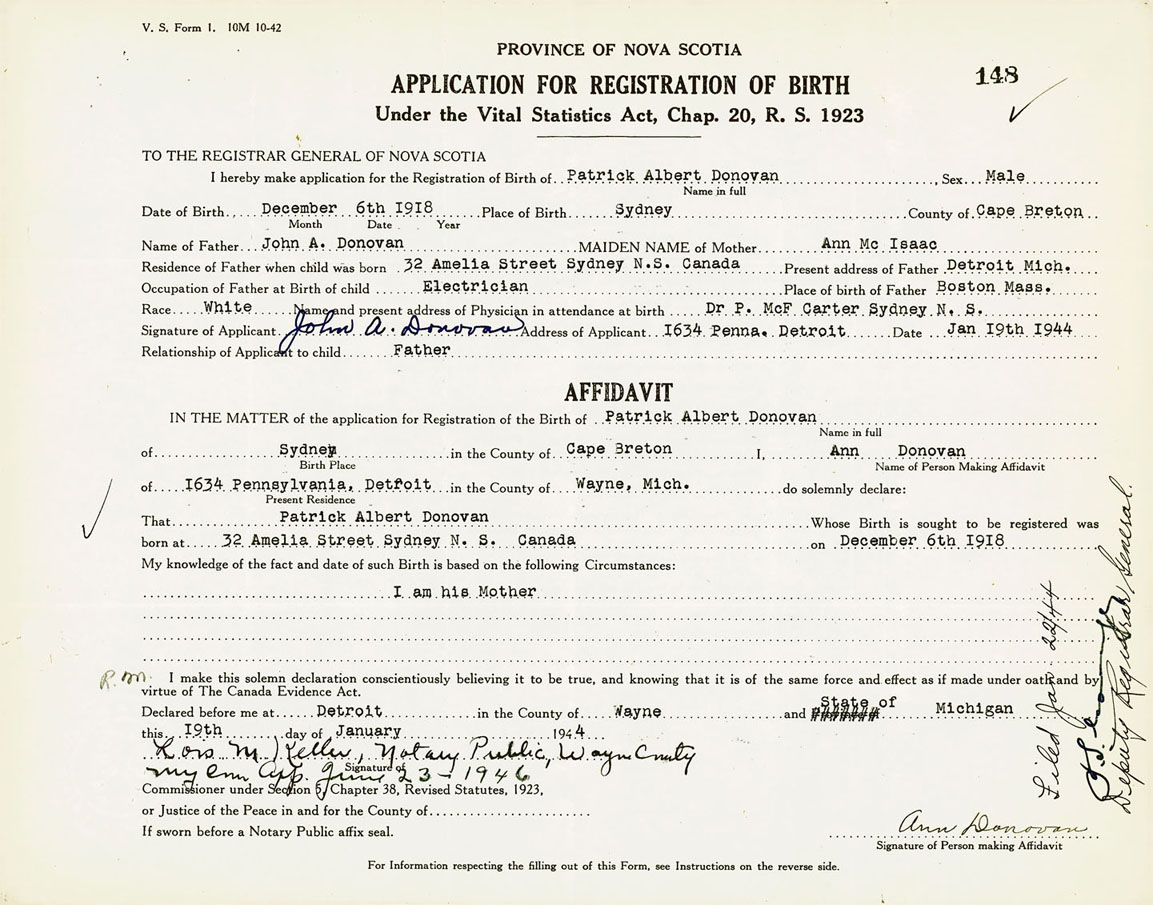 V. S. Form 1. 10M 10-42
PROVINCE OF NOVA SCOTIA
148
APPLICATION FOR REGISTRATION OF BIRTH
Under the Vital Statistics Act, Chap. 20, R. S. 1923
TO THE REGISTRAR GENERAL OF NOVA SCOTIA
I hereby make application for the Registration of Birth of Patrick Albert Donovan, Sex Male
Name in full
Date of Birth December 6th 1918 Place of Birth Sydney County of Cape Breton
Month Date Year
Name of Father John A. Donovan MAIDEN NAME of Mother Ann Mc Isaac
Residence of Father when child was born 32 Amelia Street Sydney N.S. Canada Present address of Father Detroit Mich.
Occupation of Father at Birth of child Electrician Place of birth of Father Boston Mass.
Race White Name and present address of Physician in attendance at birth Dr P. McF Carter Sydney N. S.
Signature of Applicant John A. Donovan Address of Applicant 1634 Penna. Detroit Date Jan 19th 1944
Relationship of Applicant to child Father
AFFIDAVIT
IN THE MATTER of the application for Registration of the Birth of Patrick Albert Donovan
Name in full
of Sydney in the County of Cape Breton I, Ann Donovan
Birth Place Name of Person Making Affidavit
of 1634 Pennsylvania, Detroit in the County of Wayne, Mich. do solemnly declare:
Present Residence
That Patrick Albert Donovan Whose Birth is sought to be registered was
born at 32 Amelia Street Sydney N. S. Canada on December 6th 1918
My knowledge of the fact and date of such Birth is based on the following Circumstances:
I am his Mother
R.M. I make this solemn declaration conscientiously believing it to be true, and knowing that it is of the same force and effect as if made under oath and by
virtue of The Canada Evidence Act.
Declared before me at Detroit in the County of Wayne and State of Michigan
this 19th day of January 1944
Lois M. Keller, Notary Public, Wayne County
my Com Exp. June 23-1946
Signature of
Commissioner under Section 5, Chapter 38, Revised Statutes, 1923,
or Justice of the Peace in and for the County of
If sworn before a Notary Public affix seal.
Ann Donovan
Signature of Person making Affidavit
For Information respecting the filling out of this Form, see Instructions on the reverse side.
Filed Jan. 22/44
Deputy Registrar General.